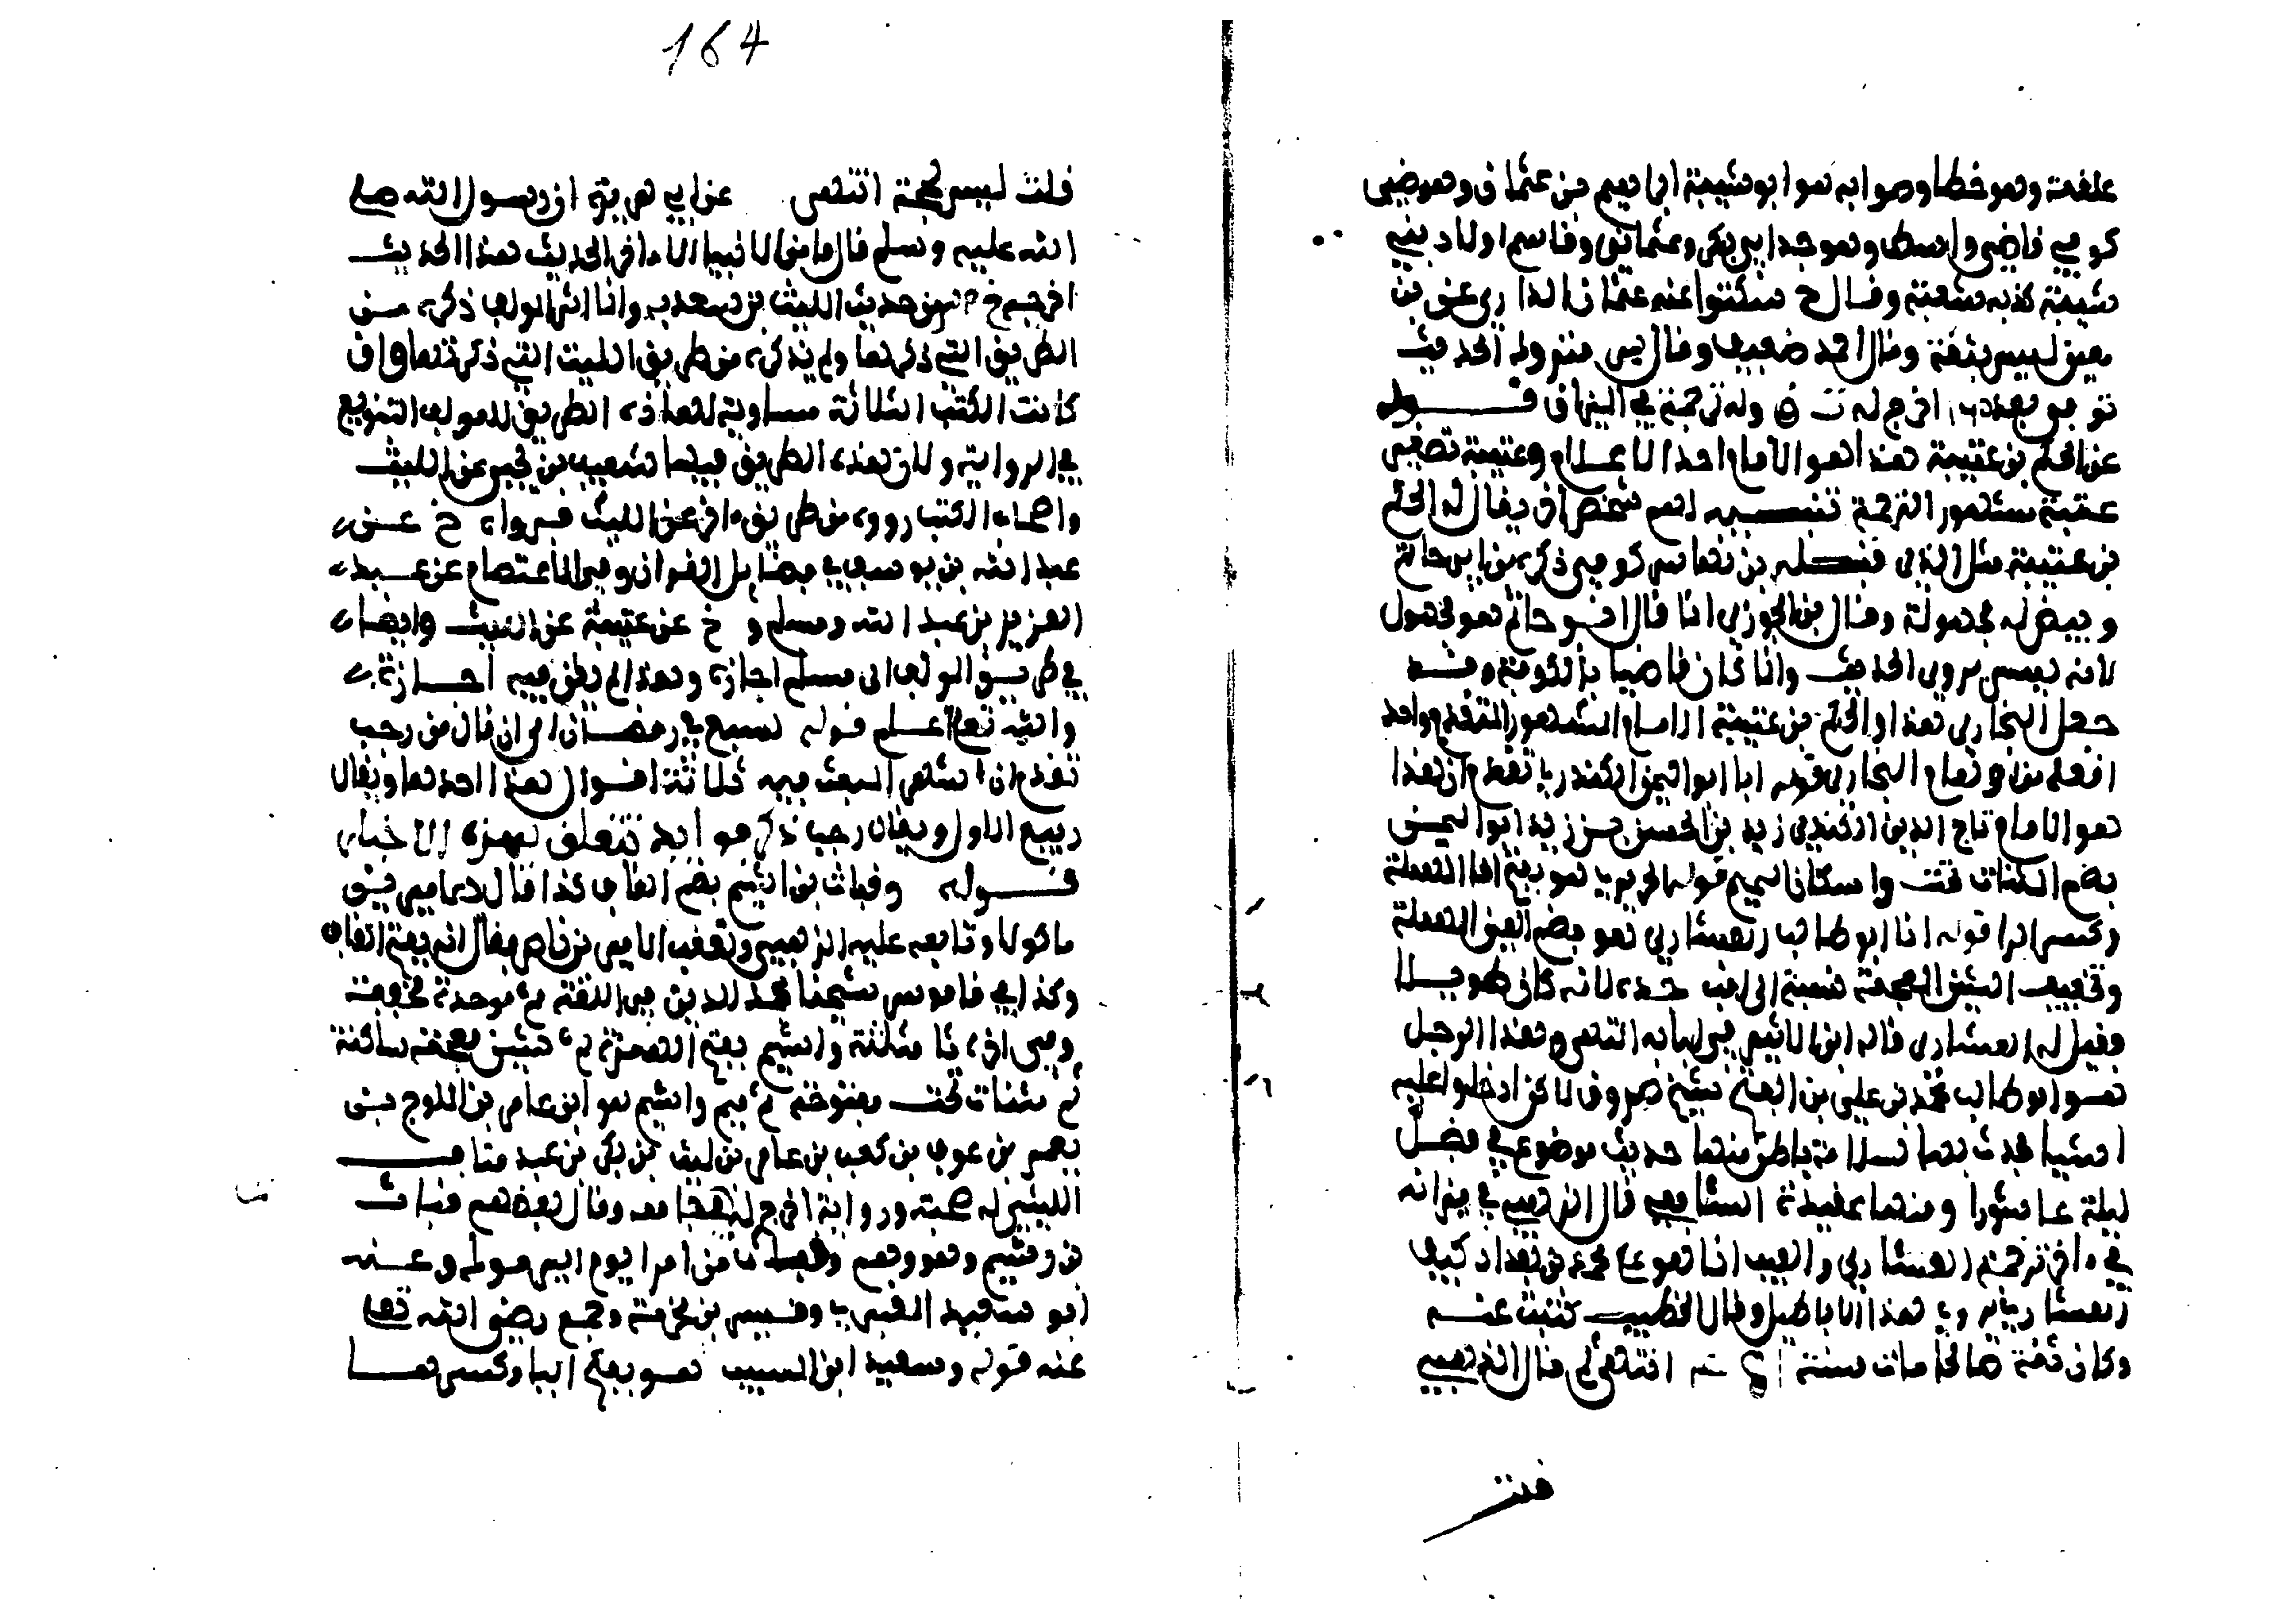 علقمة وهو خطا وصوابه هو ابو شيبة ابراهيم بن عثمان وهو ضبي
كوفي قاضي واسط وهو جد ابي بكر وعثمان وقاسم اولاد بني
شيبة كذبه شعبة وقال خ سكتوا عنه عثمان الدارمي عن بن
معين ليس بثقة وقال احمد ضعيف وقال س متروك الحديث
توفي بعد اخرج له ت ق وله ترجمة في الميزان قوله
عن الحكم بن عتيبة هذا هو الامام احد الاعلام وعتيبة تصغير
عتبة مشهور الترجمة تنبيه لهم شخص اخر يقال له الحكم
بن عتيبة مثل الذي قبله بن نهاس كوفي ذكره بن ابي حاتم
وبيض له مجهولة وقال بن الجوزي انما قال ابو حاتم هو مجهول
لانه ليس يروي الحديث وانما كان قاضيا بالكوفة وقد
جعل البخاري هذا والحكم بن عتيبة الامام المشهور المتقدم واحد
افعد من اوهام البخاري قوله انا ابو اليمن الكندي تقدم ان هذا
هو الامام تاج الدين الكندي زيد بن الحسن بن زيد ابو اليمن
بضم المثناة تحت واسكان الميم قوله الحريري هو بفتح الحا المهملة
وكسر الرا قوله انا ابو طالب العشاري هو بضم العين المهملة
وتخفيف الشين المعجمة نسبة الى لقب جده لانه كان طويلا
وقيل له العشاري قاله ابن الاثير في لبابه انتهى وهذا الرجل
هو ابو طالب محمد بن علي بن الفتح شيخ صدوق لاكن ادخلوا عليه
اشيا فحدث بها بسلامة باطن منها حديث موضوع في فضل
ليلة عاشورا ومنها عقيدة الشافعي قال الذهبي في ميزانه
في اخر ترجمة العشاري والعيب انما هو على محدثي بغداد كيف
العشاري يروي هذا الاباطيل وقال الخطيب كتبت عنه
وكان ثقة صالحا مات سنة انتهى قال الذهبي
قلت
164
قلت ليس بحجة انتهى عن ابي هريرة ان رسول الله صلى
الله عليه وسلم قال ما من الانبيا الا اخر الحديث هذا الحديث
اخرجه خ م س من حديث الليث بن سعد به وانما اثر المولف ذكره من
الطريق التي ذكرها ولم يذكره من طريق الليث التي ذكرتها وان
كانت الكتب الثلاثة مساوية لهاذه الطريق للمولف التنويع
في الرواية ولان هذه الطريق فيها شعيب بن يحيى عن الليث
واصحاب الكتب رووه من طريق اخر عن الليث فرواه خ عن
عبد الله بن يوسف في فضائل القران وفي الاعتصام عن عبد
العزيز بن عبد الله ومسلم و خ عن قتيبة عن الليث وايضا
في طريق المولف الى مسلم اجازة وهذا لم يكن فيه اجازة
والله تعالى اعلم قوله لسبع رمضان الى ان قال من رجب
تقدم ان اشهر البعث فيه ثلاثة اقوال هذا احدها ويقال
ربيع الاول ويقال رجب ذكر فوائد تتعلق بهذه الاخبار
قوله وقباث بن اشيم بضم القاف كذا قال
ماكولا وتابعه عليه الذهبي وتعقبه الامير بن ناصر فقال انه بفتح القاف
وكذا في قاموس شيخنا مجد الدين في اللغة ثم موحدة مخففة
وفي اخره ثا مثلثة واشيم بفتح الهمزة ثم شين معجمة ساكنة
ثم مثناة تحت مفتوحة ثم ميم واشيم هو ابن عامر بن الملوح بن
يعمر بن عوف بن كعب بن عامر بن ليث بن بكر بن عبد مناف
الليثي له صحبة ورواية اخرج له وقال بعضهم قباث
بن رستم وهو وهم
ابو سعيد المقبري وقيس بن مخرمة وجمع رضي الله تعالى
عنه قوله وسعيد ابن المسيب هو بفتح اليا وكسرها